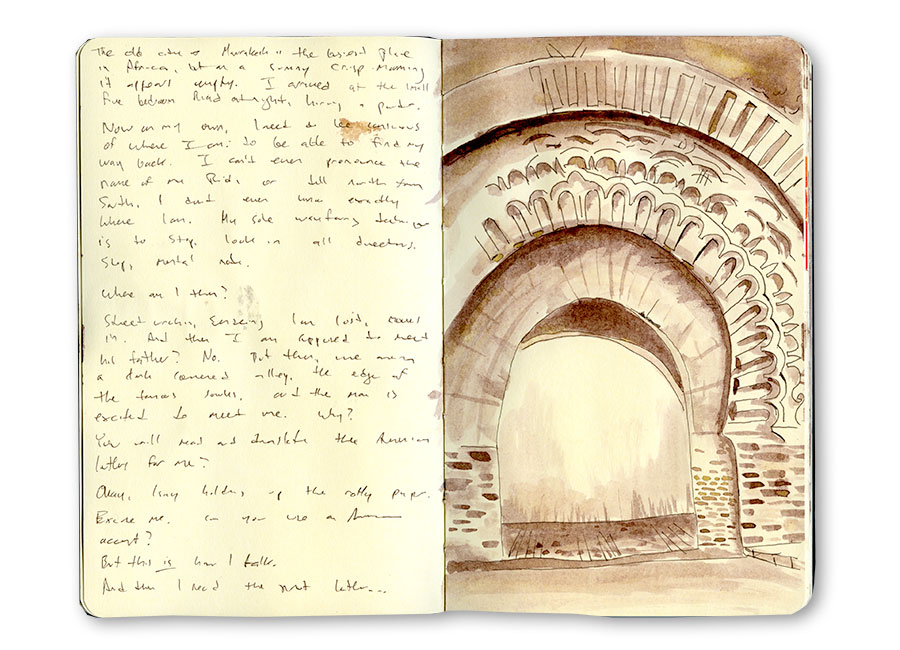 The old city of Marrakesh is the busiest place
in Africa, but on a sunny crisp morning
it appears empty. I arrived at the small
five bedroom Riad
Now on my own, I need to be conscious
of where I am to be able to find my
way back. I can't even pronounce the
name of my Riad, or tell north from
South, I don't even know exactly
where I am. My sole wayfaring technique
is to stop, look in all directions.
Stop, mental note.
Where am I then?
Street urchin, sensing I am lost, moves
in. And then I am supposed to meet
his father? No. But then, we
a dark covered alley, the edge of
the famous souks, and the man is
excited to meet me. Why?
You will read and translate these American
letters for me?
Okay, I say holding up the ratty paper.
Excuse me. Can you use an American
accent?
But this is how I talk.
And then I read the next letter...